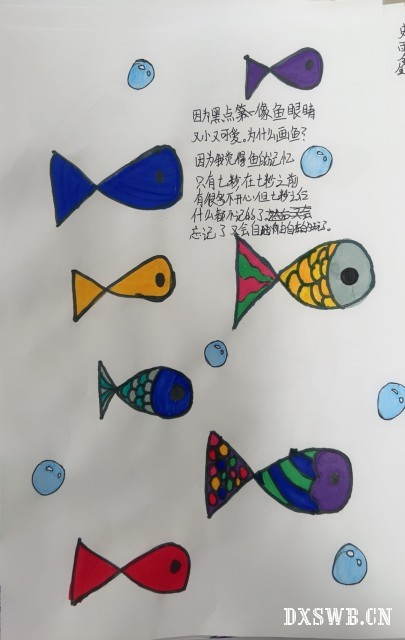 因为黑点第一像鱼眼睛
又小又可爱。为什么画鱼?
因为我觉得鱼的记忆
只有七秒在七秒之前
有很多不开心但七秒之后
什么都不记的了
忘记了又会自由自在的玩了。
DXSWB.CN